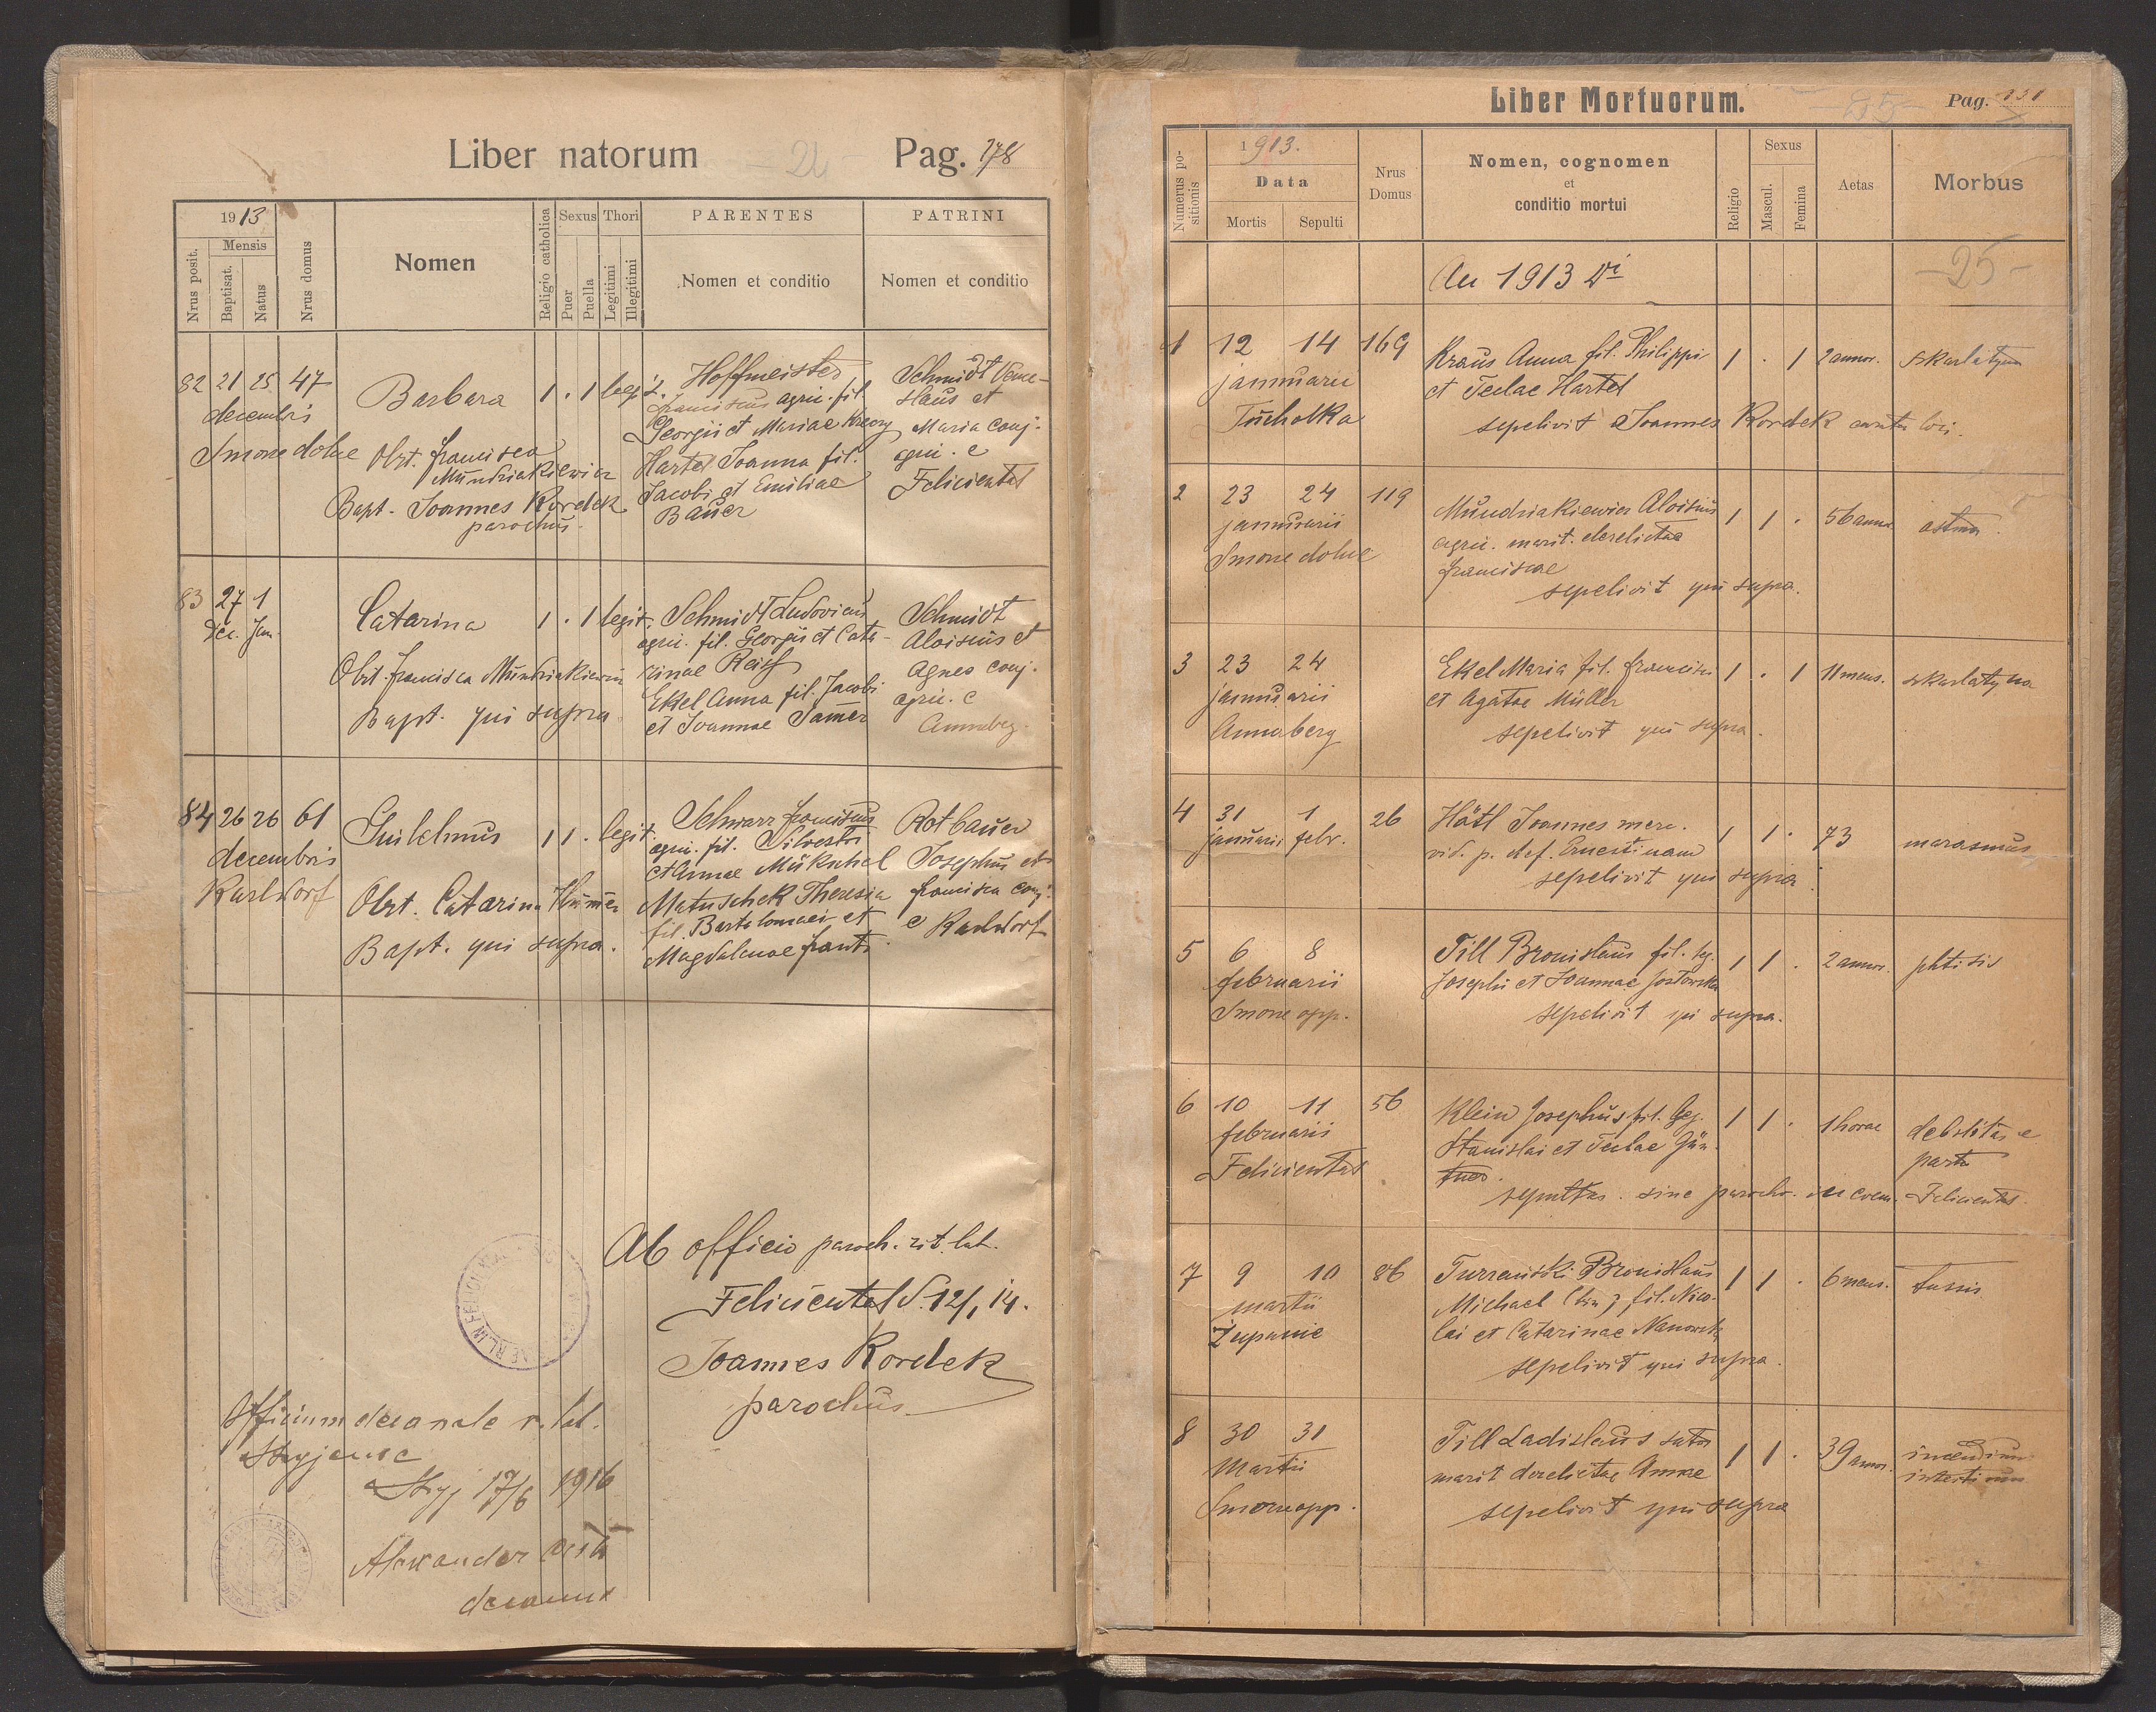 Liber natorum Pag. 178
1913
Nrus posit.
Mensis
Baptisat.
Natus
Nrus domus
Nomen
Religio catholica
Sexus
Puer
Puella
Thori
Legitimi
Illegitimi
PARENTES
Nomen et conditio
PATRINI
Nomen et conditio
82 21 25 47
decembris
Smorze dolne
Barbara 1 . 1 legit.
Obst. Francisca
Mundriakiewicz
Bapt. Joannes Kordek
parochus
Hoffmeister
Franciscus agric. fil.
Georgii et Mariae
Hartel Joanna fil.
Jacobi et Emiliae
Bauer
Schmidt Vence-
slaus et
Maria conj.
agric. e
Felicientel
83 27 1
Dec. Jan.
Catarina 1 . 1 legit.
Obst. Francisca Mundriakiewicz
Bapt. qui supra
Schmidt Ludovicus
agric. fil. Georgii et Cata-
rinae Reisz
Ekel Anna fil. Jacobi
et Joannae Samer
Schmidt
Aloisius et
Agnes conj.
agric. e
Annaberg.
84 26 26 61
decembris
Karlsdorf
Guilelmus 1 1 . legit.
Obst. Catarina Hummer
Bapt. qui supra.
Schwarz Franciscus
agric. fil. Silvestri
et Annae Mükschel
Matuschek Theresia
fil. Bartolomaei et
Magdalenae Frants
Rotbauer
Josephus et
Francisca conj.
e Karlsdorf
Ab officio paroch. rit. lat.
Felicientel d. 12/1 14.
Joannes Kordek
parochus
Officium decanale r. lat.
Stryjense
Stryj 17/6 1916
Alexander
decanus
Liber Mortuorum. Pag. 131
Numerus po-
sitionis
1913.
Data
Mortis
Sepulti
Nrus
Domus
Nomen, cognomen
et
conditio mortui
Religio
Sexus
Mascul.
Femina
Aetas
Morbus
An 1913 Di
-25-
1 12 14 169
januarii
Tucholka
Kraus Anna fil. Philippi
et Teclae Hartel
1 . 1 2 annor. skarlatyna
sepelivit Joannes Kordek curatus loci.
2 23 24 119
januarii
Smorze dolne
Mundriakiewicz Aloisius
agric. marit. derelictae
Franciscae
1 1 . 56 annor. astma
sepelivit qui supra.
3 23 24
januarii
Annaberg
Ekel Maria fil. Francisci
et Agatae Müller
1 . 1 11 mens. skarlatyna
sepelivit qui supra.
4 31 1 26
januarii febr.
Hätl Joannes merc.
vid. p. def. Ernestinam
1 1 . 73 marasmus
sepelivit qui supra.
5 6 8
februarii
Smorze opp.
Till Bronislaus fil. leg.
Josephi et Joannae
1 1 . 2 annor. phtisis
sepelivit qui supra.
6 10 11 56
februarii
Felicientel
Klein Josephus fil. leg.
Stanislai et Teclae Gün-
tner.
1 1 . 1 horae debilitas e
partu
sepultus . sine parocho . in coem. Felicientel.
7 9 10 86
martii
Żupanie
Turzański Bronislaus
Michael (bin.) fil. Nico-
lai et Catarinae
1 1 . 6 mens. tussis
sepelivit qui supra.
8 30 31
Martii
Smorze opp.
Till Ladislaus sutor
marit derelictae Annae
1 1 . 39 annor. incendium
intestinum
sepelivit qui supra